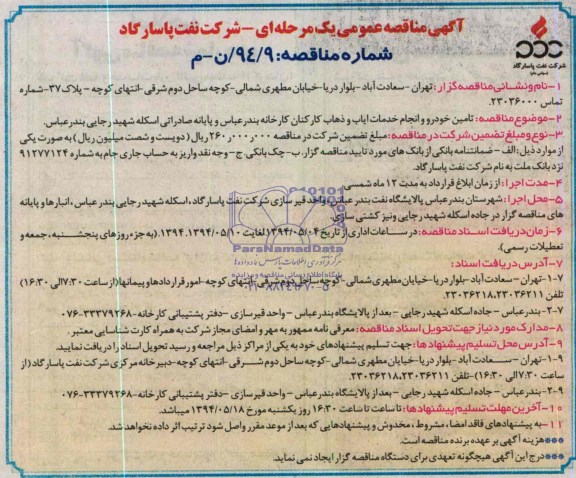 آگهی مناقصه عمومی یک مرحله‌ای - شرکت نفت پاسارگاد
شماره مناقصه: ۹۴/۹/ن-م
شرکت نفت پاسارگاد
۱-نام و نشانی مناقصه گزار: تهران - سعادت آباد-بلوار دریا-خیابان مطهری شمالی-کوچه ساحل دوم شرقی-انتهای کوچه - پلاک ۳۷-شماره
تماس ۲۳۰۲۶۰۰۰.
۲-موضوع مناقصه: تامین خودرو و انجام خدمات ایاب و ذهاب کارکنان کارخانه بندرعباس و پایانه صادراتی اسکله شهید رجایی بندرعباس.
۳-نوع و مبلغ تضمین شرکت در مناقصه: مبلغ تضمین شرکت در مناقصه ۲۶۰,۰۰۰,۰۰۰ ریال (دویست و شصت میلیون ریال) به صورت یکی
از موارد ذیل: الف - ضمانتنامه بانکی از بانک های مورد تایید مناقصه گزار. ب-چک بانکی ج-وجه نقد واریز به حساب جاری جام به شماره ۹۱۲۷۷۱۲۴
نزد بانک ملت به نام شرکت نفت پاسارگاد.
۴-مدت اجرا: از زمان ابلاغ قرارداد به مدت ۱۲ ماه شمسی
۵-محل اجرا: شهرستان بندرعباس پالایشگاه نفت بندرعباس، واحد قیر سازی شرکت نفت پاسارگاد، اسکله شهید رجایی بندر عباس، انبارها و پایانه
های مناقصه گزار در جاده اسکله شهید رجایی و نیز کشتی سازی.
۶-زمان دریافت اسناد مناقصه: در ساعات اداری از تاریخ ۱۳۹۴/۰۵/۰۴ لغایت ۱۳۹۴/۰۵/۱۰. (به جز روزهای پنجشنبه، جمعه و
تعطیلات رسمی).
۷-آدرس دریافت اسناد:
۷-۱-تهران- سعادت آباد-بلوار دریا-خیابان مطهری شمالی-کوچه ساحل دوم شرقی-انتهای کوچه-امور قراردادها و پیمانها (از ساعت ۷:۳۰ الی ۱۶:۳۰)
تلفن ۲۳۰۳۶۲۱۱، ۲۳۰۳۶۲۱۸
۷-۲-بندرعباس - جاده اسکله شهید رجایی - بعد از پالایشگاه بندرعباس - واحد قیرسازی - دفتر پشتیبانی کارخانه-۳۳۳۷۹۲۶۸-۰۷۶
۸-مدارک مورد نیاز جهت تحویل اسناد مناقصه: معرفی نامه ممهور به مهر و امضای مجاز شرکت به همراه کارت شناسایی معتبر.
۹-آدرس محل تسلیم پیشنهادها: جهت تسلیم پیشنهادهای خود به یکی از مراکز ذیل مراجعه و رسید تحویل اسناد را دریافت نمایید.
۹-۱-تهران - سعادت آباد-بلوار دریا-خیابان مطهری شمالی-کوچه ساحل دوم شرقی-انتهای کوچه-دبیرخانه مرکزی شرکت نفت پاسارگاد (از
ساعت ۷:۳۰ الی ۱۶:۳۰)-تلفن ۲۳۰۳۶۲۱۱، ۲۳۰۳۶۲۱۸.
۹-۲-بندرعباس - جاده اسکله شهید رجایی - بعد از پالایشگاه بندرعباس - واحد قیرسازی - دفتر پشتیبانی کارخانه-۳۳۳۷۹۲۶۸-۰۷۶
۱۰-آخرین مهلت تسلیم پیشنهادها: تا ساعت تا ساعت ۱۶:۳۰ روز یکشنبه مورخ ۱۳۹۴/۰۵/۱۸ میباشد.
۱۱-به پیشنهادهای فاقد امضا، مشروط، مخدوش و پیشنهادهایی که بعد از موعد مقرر واصل شود ترتیب اثر داده نخواهد شد.
***هزینه آگهی بر عهده برنده مناقصه است.
***درج این آگهی هیچگونه تعهدی برای دستگاه مناقصه گزار ایجاد نمی نماید.
ParsNamadData